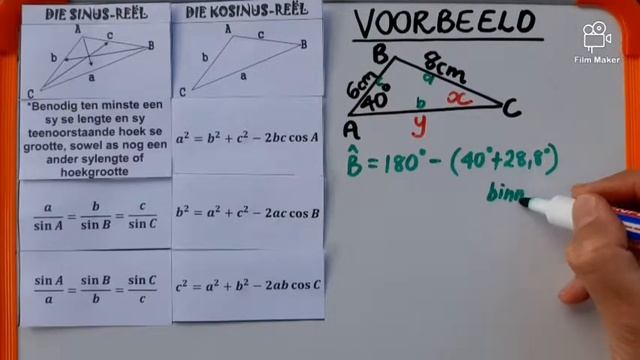 DIE SINUS-REËL
A
c
B
b
a
C
*Benodig ten minste een
sy se lengte en sy
teenoorstaande hoek se
grootte, sowel as nog een
ander sylengte of
hoekgrootte
a/sin A = b/sin B = c/sin C
sin A/a = sin B/b = sin C/c
DIE KOSINUS-REËL
A
c
B
b
a
C
a² = b² + c² − 2bc cos A
b² = a² + c² − 2ac cos B
c² = a² + b² − 2ab cos C
VOORBEELD
B
8cm
6cm
c
a
40°
b
x
C
A
y
B̂ = 180° − (40° + 28,8°)
binn
Film Maker